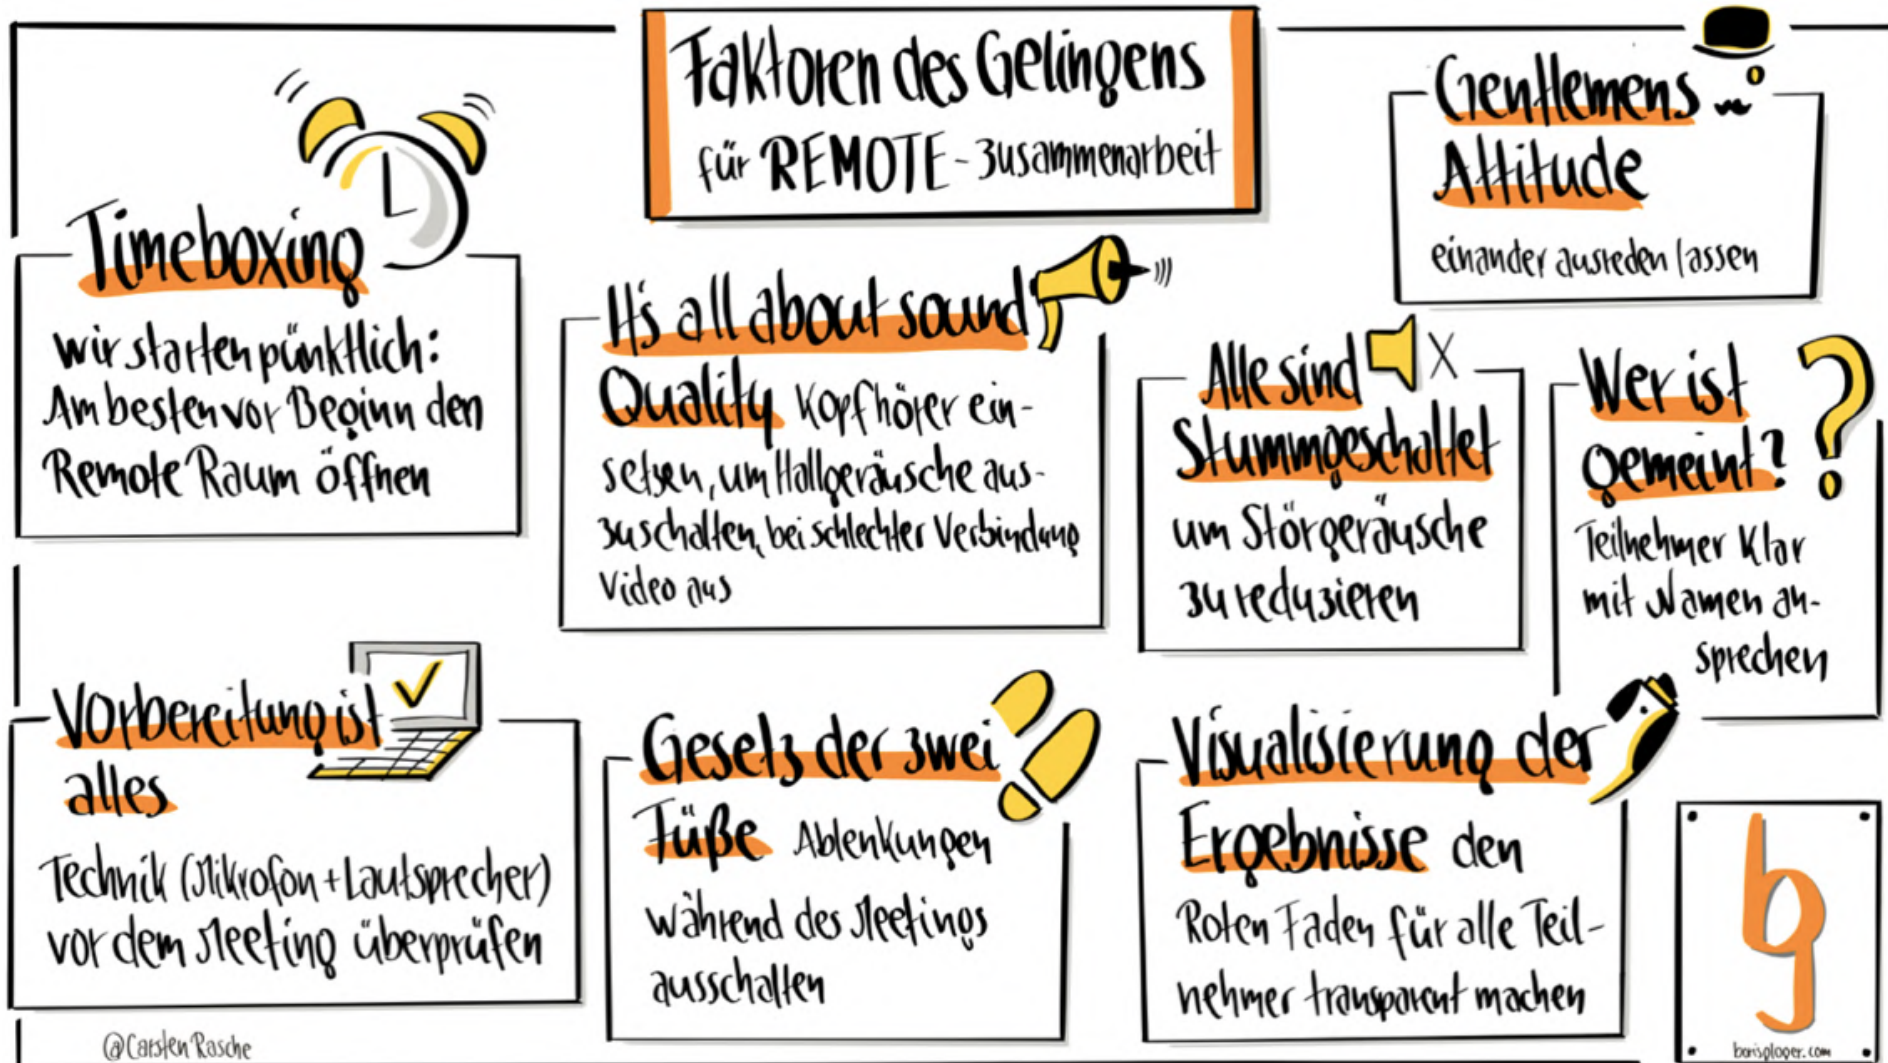 Faktoren des Gelingens
für REMOTE-Zusammenarbeit
Timeboxing
wir starten pünktlich:
Am besten vor Beginn den
Remote Raum öffnen
It's all about sound
Quality Kopfhörer ein-
setzen, um Hallgeräusche aus-
zuschalten, bei schlechter Verbindung
Video aus
Gentlemens
Attitude
einander ausreden lassen
Alle sind
Stummgeschaltet
um Störgeräusche
zu reduzieren
Wer ist
gemeint?
Teilnehmer klar
mit Namen an-
sprechen
Vorbereitung ist
alles
Technik (Mikrofon + Lautsprecher)
vor dem Meeting überprüfen
Gesetz der zwei
Füße Ablenkungen
während des Meetings
ausschalten
Visualisierung der
Ergebnisse den
Roten Faden für alle Teil-
nehmer transparent machen
@Carsten Rasche
bg
borisgloger.com